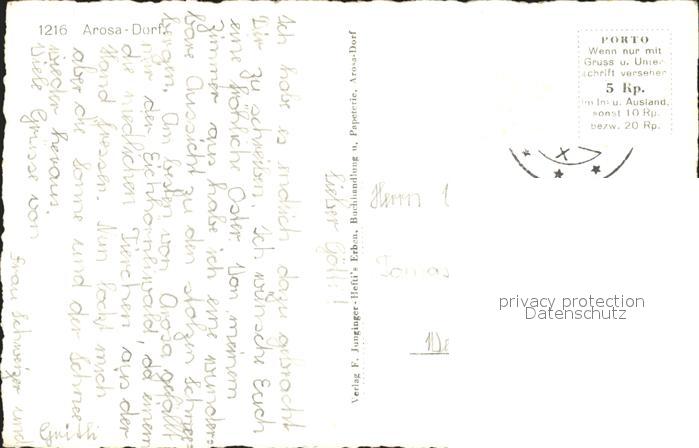 1216 Arosa-Dorf.
Lieber Götti!
Ich habe es endlich dazu gebracht
Dir zu schreiben. Ich wünsche Euch
eine fröhliche Ostern. Von meinem
Zimmer aus habe ich eine wunder-
bare Aussicht zu den stolzen Schnee-
bergen. Am besten von Arosa gefällt
mir der Eichhörnliwald, da einem
die niedlichen Tierchen aus der
Hand fressen. Nun lockt mich
aber die Sonne und der Schnee
wieder heraus.
Viele Grüsse von
Frau Schweizer und
Verlag F. Junginger-Hefti's Erben, Buchhandlung u. Papeterie, Arosa-Dorf
PORTO
Wenn nur mit
Gruss u. Unter-
schrift versehen
5 Rp.
im In- u. Ausland,
sonst 10 Rp.
bezw. 20 Rp.
Herrn
privacy protection
Datenschutz